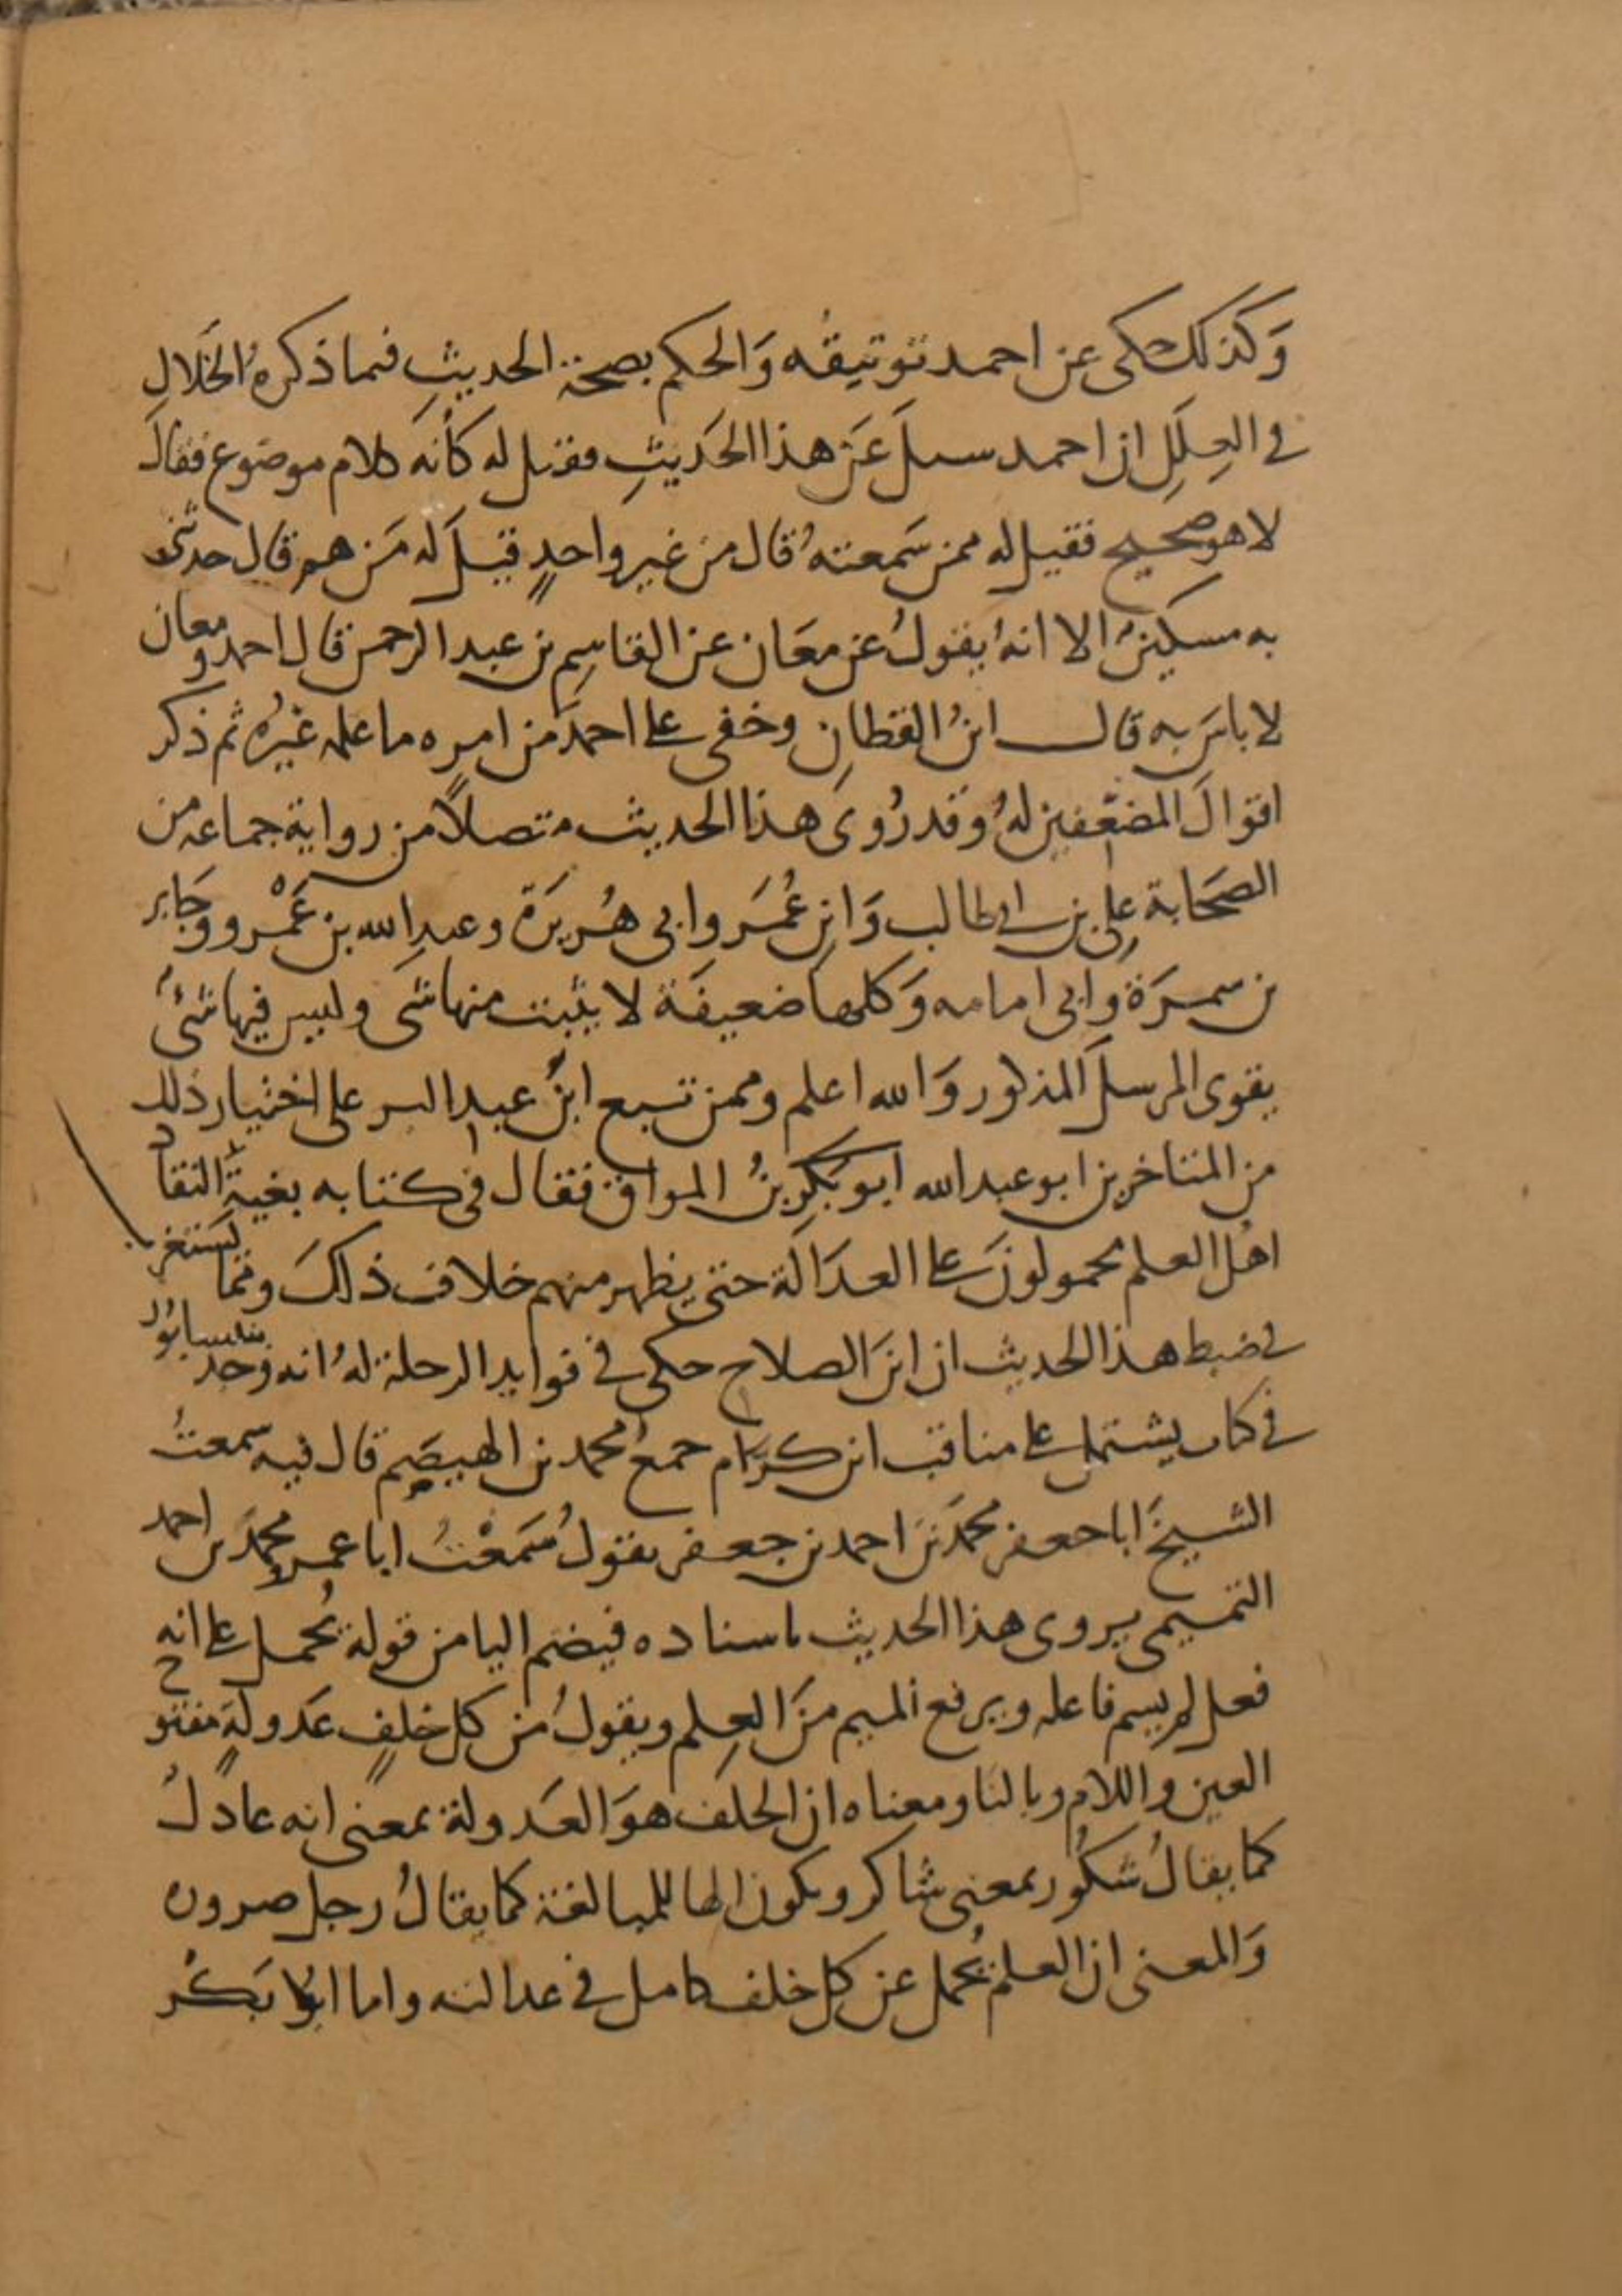 وَكذلك حكى عن احمد توثيقُه وَالحكم بصحة الحديثِ فيما ذكرهُ الخَلالِ
في العِلَلِ ان احمد سىلَ عَن هذا الحَديثِ فقيل له كأنهَ كلام موضوع فقالَ
لا هو صحيح فقيل له ممن سَمعتهُ قال من غير واحدٍ قيلَ له مَن هم قال حدثنى
به مسكينٌ الا انهُ يقولُ عن معَان عن القاسِم بن عبد الرحمن قال احمد ومعان
لا باسَ به قال ابنُ القطانِ وخفى على احمدَ من امره ما علمه غيرُه ثم ذكر
اقوالَ المضعّفين لهُ وقد رُوىَ هذا الحديث متصلاً من رواية جماعه من
الصحَابة علِى بن ابى طالب وَابنِ عُمَر وابى هُريرَة وعبدِ الله بن عَمْرو وَجَابر
بن سمرَة وابى امامه وَكلها ضعيفَة لا يثبت منها شى وليس فيها شىٌ
يقوى المرسلَ المذكور وَالله اعلم وممن تبع ابنَ عبد البر على اختيار ذلك
من المتاخرين ابو عبد الله ابو بَكر بنُ المواق فقال فى كتابه بغيةُ النقاد
اهلُ العلم محمولونَ على العدَالَة حتى يظهر منهم خلاف ذلكَ ومما يُستغرب
في ضبط هذا الحديث ان ابنَ الصلاح حكى في فوايد الرحلة لهُ انه وَجد بنيسابُور
في كتاب يشتمل على مناقب ابن كرّام جمعُ محمد بن الهيصَم قال فيه سمعتُ
الشيخَ ابا جعفر محمدَ بن احمد بن جعفر يقولُ سَمعْتُ ابا عمرٍو محمدَ بن احمد
التميمى يروى هذا الحديث باسناده فيضم اليا من قوله يُحمل على انه
فعل لم يسم فاعله ويرفع الميم منَ العِلم ويقولُ من كل خلفٍ عَدولَةٍ مفتوح
العين واللام وبالتا ومعناه ان الخلَف هوَ العَدولة بمعنى انه عادلُ
كما يقالُ شكُور بمعنى شاكر ويكون الها للمبالغة كما يقالُ رجل صروره
وَالمعنى ان العلم يُحمل عن كل خلف كامل في عدالته واما ابو بَكر